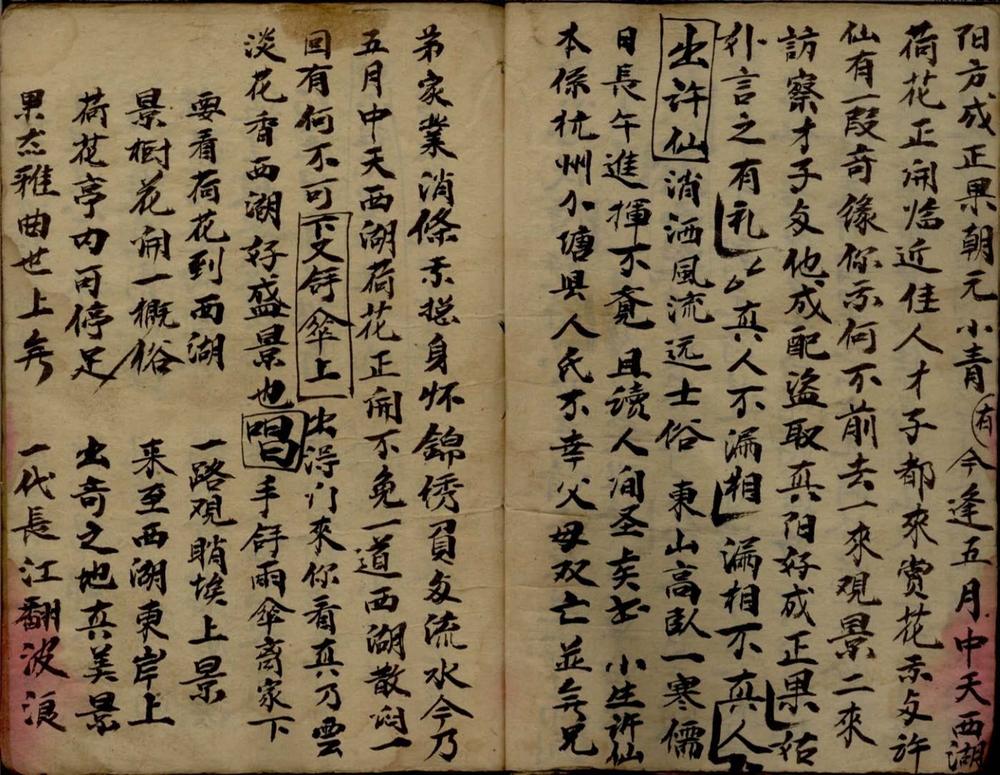 阳方成正果朝元小青有今逢五月中天西湖
荷花正開临近佳人才子都來赏花示与许
仙有一段奇缘你示何不前去一來观景二來
訪察才子与他成配盗取真阳好成正果
外言之有礼真人不漏相漏相不真人
出许仙消洒風流远士俗東山高卧一寒儒
日長午進揮不竟且读人间圣矣出小生许仙
本係杭州小塘县人氏不幸父母双亡並無兄
弟家業消條示挖身怀錦绣負多流水今乃
五月中天西湖荷花正開不免一道西湖散闷一
回有何不可下又舒傘上出得门來你看真乃雲
淡花香西湖好盛景也唱手舒雨傘离家下
要看荷花到西湖一路观晴埃上景
景樹花開一概俗來至西湖東岸上
荷花亭内可停足出奇之地真美景
果杰雅曲世上無一代長江翻波浪